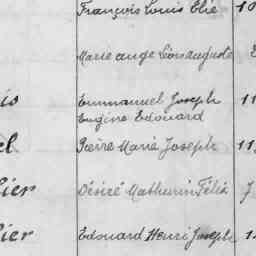 François Louis Elie 10
Marie ange Léon auguste
is Emmanuel Joseph 11
Eugène Edouard
el Pierre Marie Joseph 11
lier Désiré Mathurin Félix J
lier Edouard Henri Joseph 1